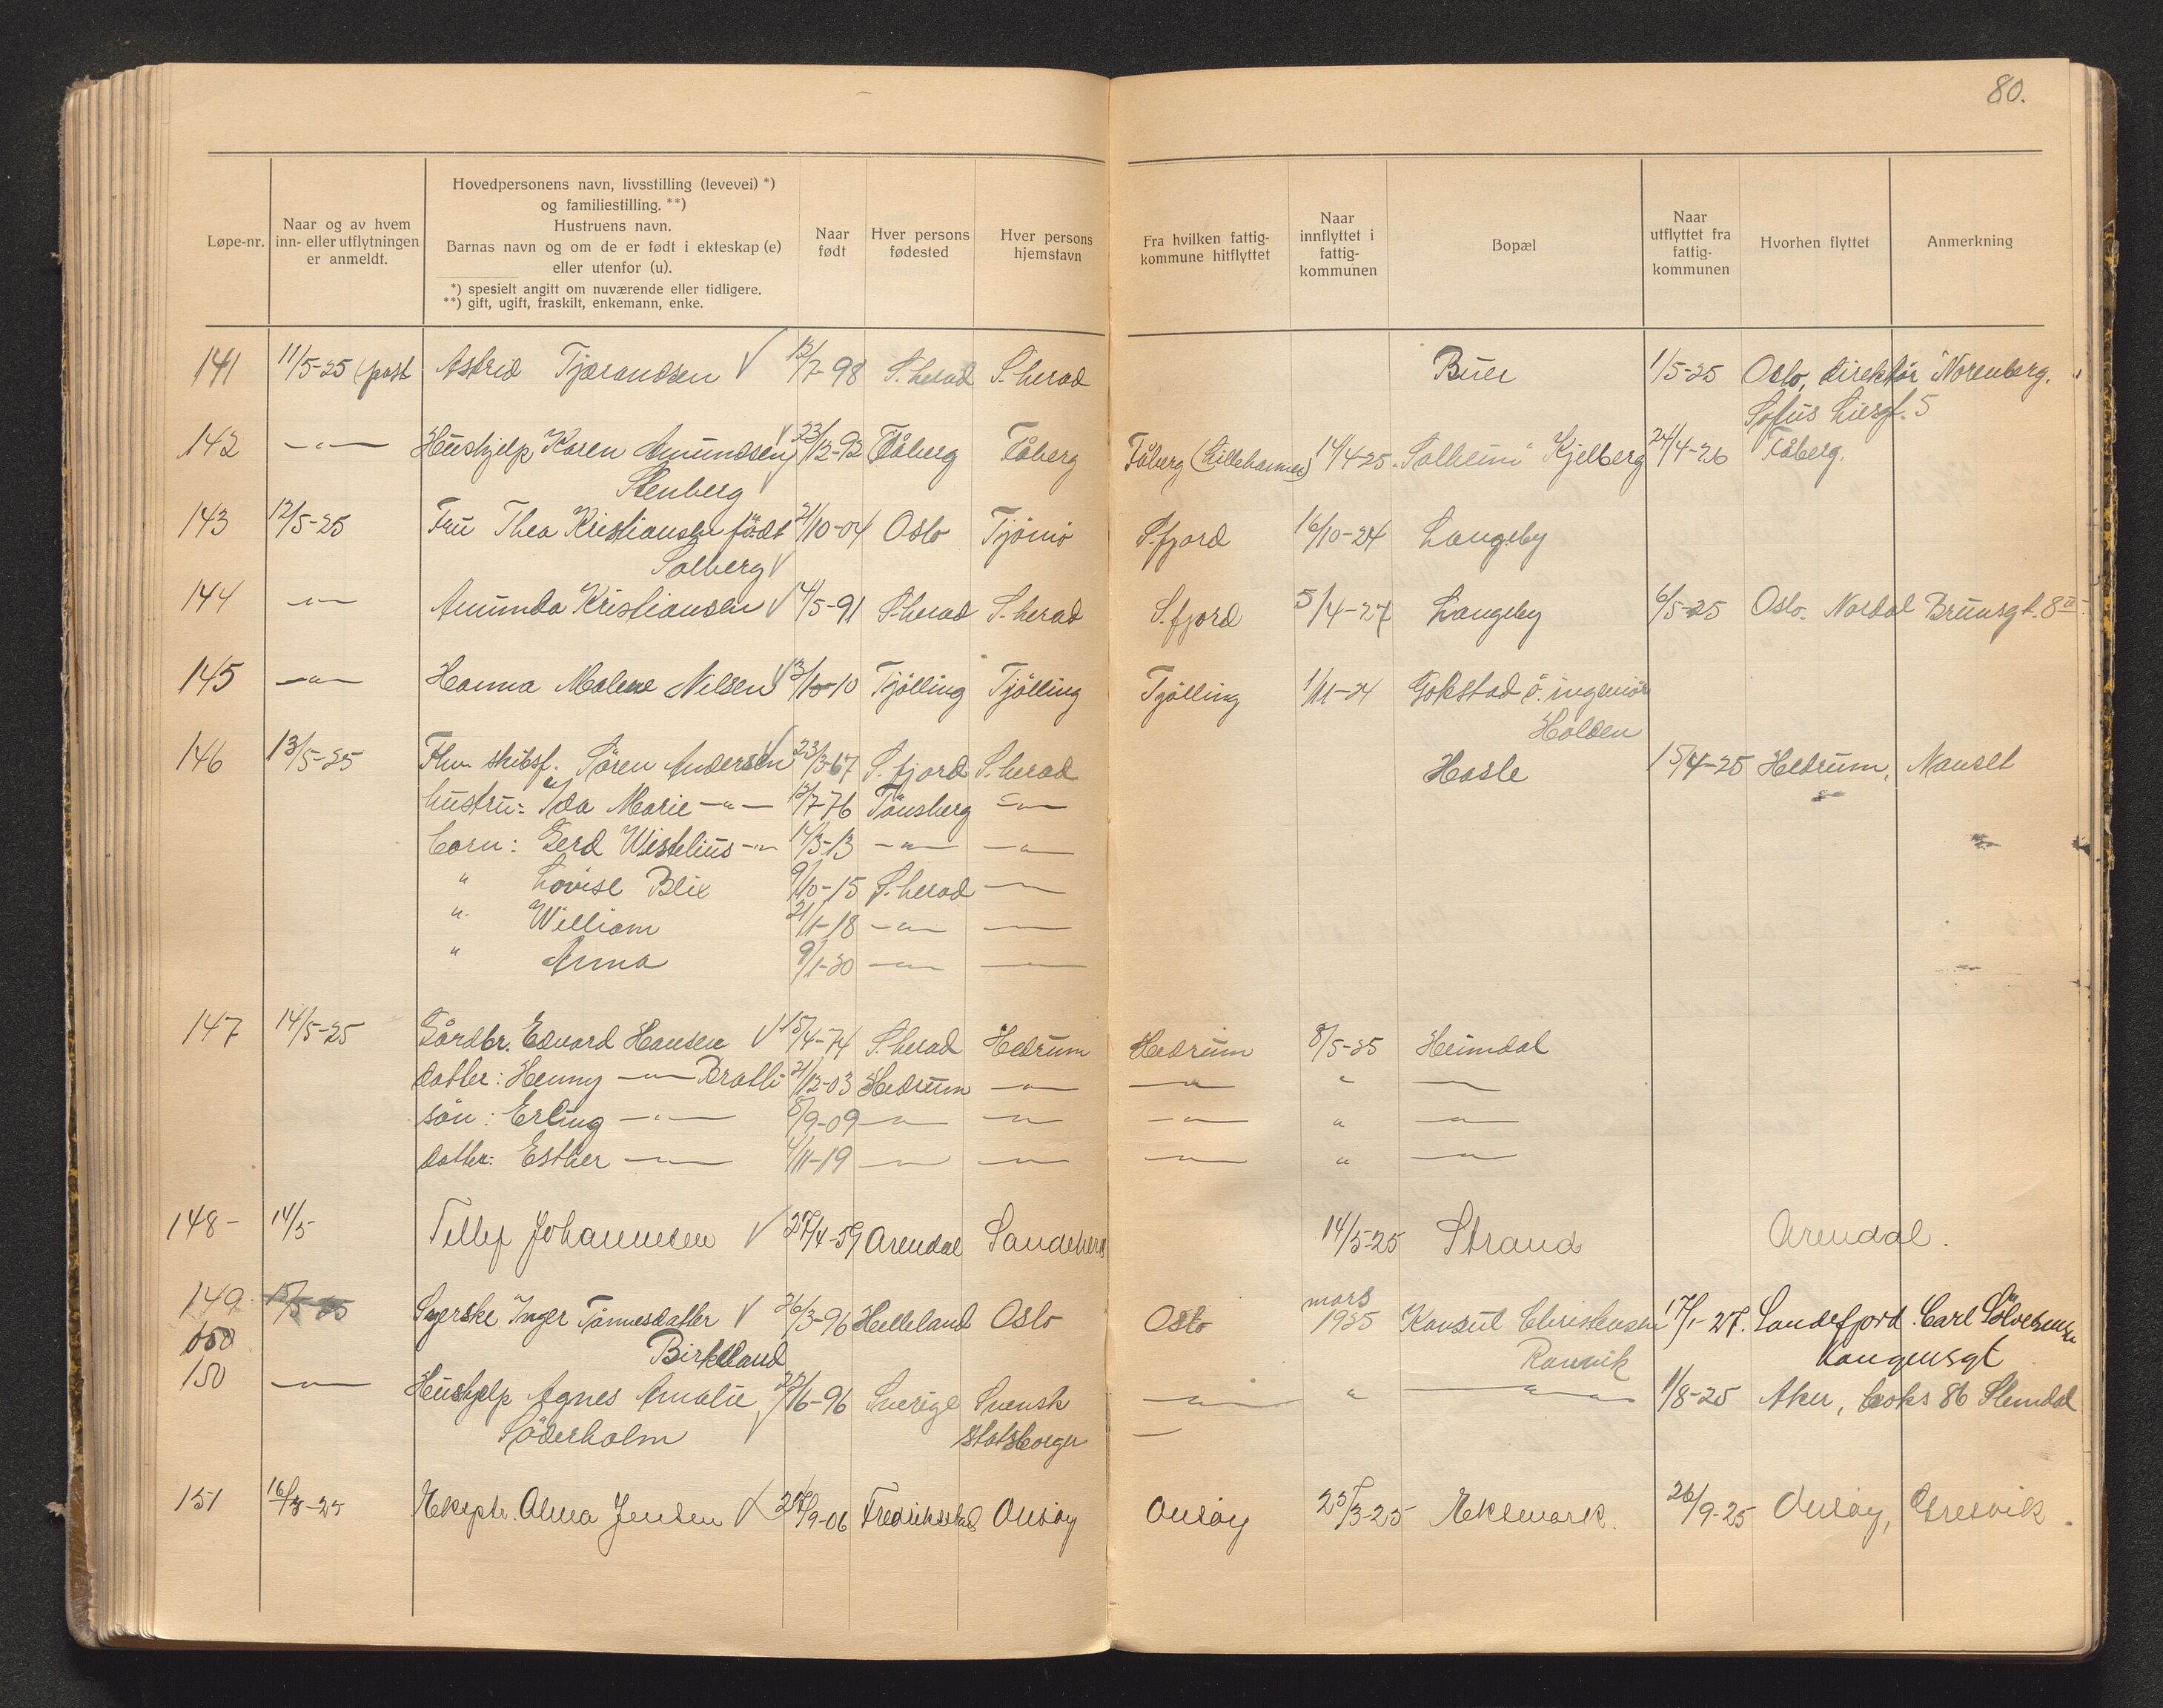 80.
Løpe-nr.
Naar og av hvem
inn- eller utflytningen
er anmeldt.
Hovedpersonens navn, livsstilling (levevei) *)
og familiestilling. **)
Hustruens navn.
Barnas navn og om de er født i ekteskap (e)
eller utenfor (u).
*) spesielt angitt om nuværende eller tidligere.
**) gift, ugift, fraskilt, enkemann, enke.
Naar
født
Hver persons
fødested
Hver persons
hjemstavn
Fra hvilken fattig-
kommune hitflyttet
Naar
innflyttet i
fattig-
kommunen
Bopæl
Naar
utflyttet fra
fattig-
kommunen
Hvorhen flyttet
Anmerkning
141 11/5-25 (post Astrid Tjærandsen √ 12/7-98 S.herad S.herad Buer 1/5-25 Oslo, direktör Norenberg.
Sofus Liesgt. 5
142 —"— Hushjelp Karen Amundsen √ 23/12-92 Fåberg Fåberg Fåberg (Lillehammer) 14/4-25 "Solheim" Kjelberg 24/4-26 Fåberg.
Stenberg √
143 12/5-25 Fru Thea Kristiansen födt 21/10-04 Oslo Tjömö S.fjord 16/10-24 Langeby
Solberg √
144 —"— Amunda Kristiansen √ 4/5-91 S.herad S.herad S.fjord 5/4-27 Langeby 6/5-25 Oslo. Nordal Brunsgt. 8 II
145 —"— Hanna Malene Nilsen √ 3/10-10 Tjölling Tjölling Tjölling 1/11-24 Gokstad ö. ingeniör
Holden
146 13/5-25 Fhv. skibsf. Sören Andersen √ 23/3-67 S.fjord S.herad Hasle 15/4-25 Hedrum, Nanset
hustru: Ida Marie —"— 12/7-76 Tönsberg —"—
barn: Gerd Wistelius —"— 14/3-13 —"— —"—
" Lovise Blix 9/10-15 S.herad —"—
" William 21/1-18 —"— —"—
" Anna 9/1-20 —"— —"—
147 14/5-25 Gårdbr. Edvard Hansen √ 15/4-74 S.herad Hedrum Hedrum 8/5-25 Heimdal
datter: Henny —"— Bratli 21/12-03 Hedrum —"— —"— " —"—
sön: Erling —"— 8/9-09 —"— —"— —"— " —"—
datter: Esther —"— 4/11-19 —"— —"— —"— " —"—
148- 14/5- Tellef Johannesen √ 27/4-59 Arendal Sandeherd 14/5-25 Strand Arendal.
149 15/5-25 Syerske Inger Tönnesdatter √ 26/3-96 Helleland Oslo Oslo mars
1925 Konsul Christensen 17/1-27. Sandefjord Carl Sölvesensen
Birkeland Ranvik Langensgt
150 —"— Hushjelp Agnes Amalie √ 22/6-96 Sverige Svensk —"— " —"— 1/8-25 Aker, boks 86 Slemdal
Söderholm √ statsborger —
151 16/3-25 Eksptr. Alma Jensen √ 27/9-06 Fredrikstad Onsöy Onsöy 25/3-25 Meksmark. 26/9-25 Onsöy, Gresvik.